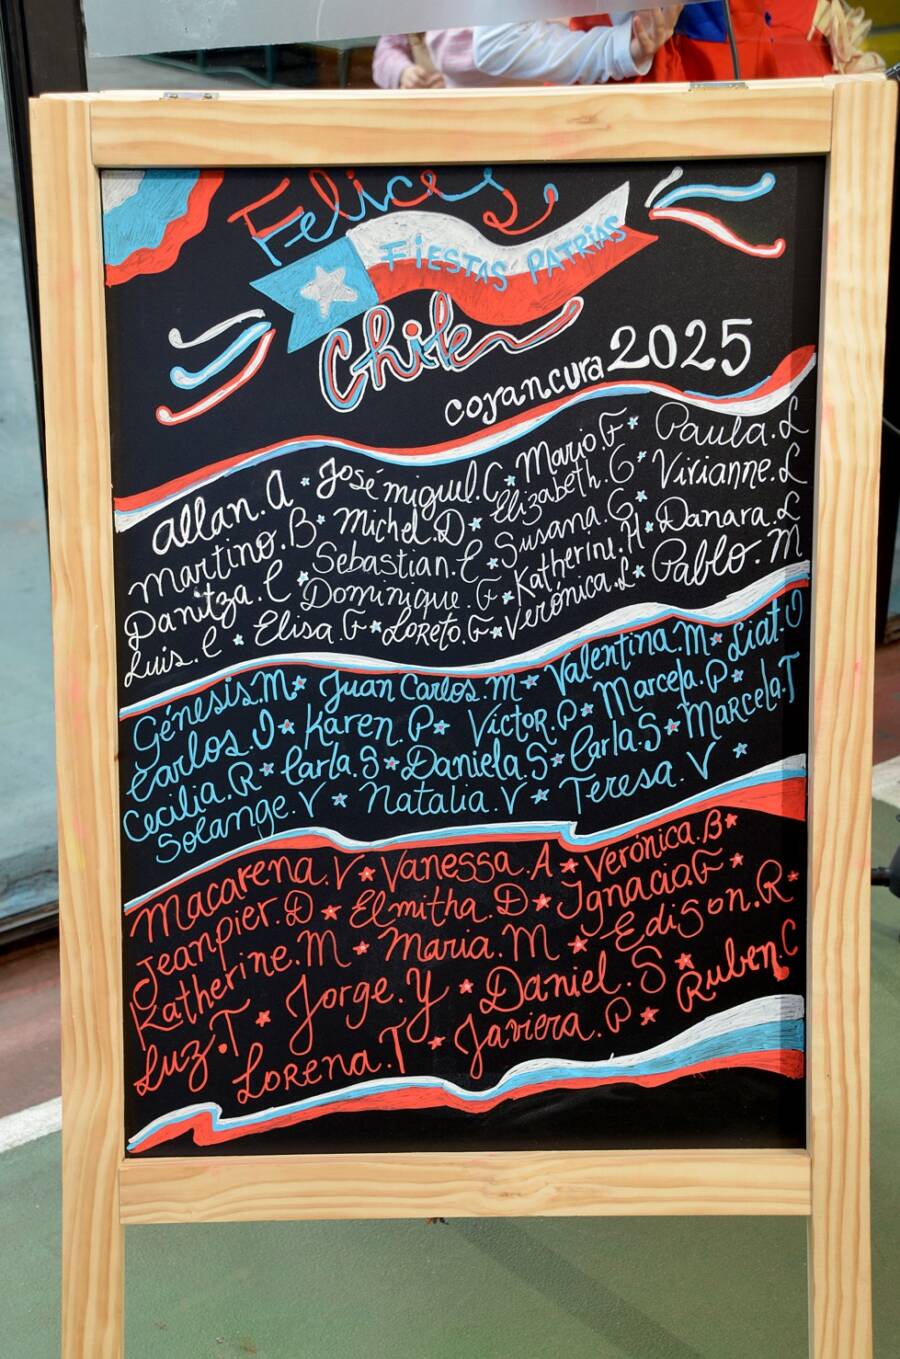 Felices
FIESTAS PATRIAS
Chile
coyancura 2025
Allan.A * José miguel.C * Mario.G * Paula.L
Martino.B * Michel.D * Elizabeth.G * Vivianne.L
Danitza.C * Sebastian.E * Susana.G * Danara.L
Luis.C * Dominique.G * Katherine.H * Pablo.M
Elisa.G * Loreto.G * Verónica.L
Génesis.M * Juan Carlos.M * Valentina.M * Liat.O
Carlos.O * Karen.P * Victor.P * Marcela.P * Marcela.T
Cecilia.R * Carla.S * Daniela.S * Carla.S
Solange.V * Natalia.V * Teresa.V *
Macarena.V * Vanessa.A * Verónica.B *
Jeanpier.D * Elmitha.D * Ignacio.G *
Katherine.M * Maria.M * Edison.R *
Luz.T * Jorge.Y * Daniel.S * Ruben.C
Lorena.T * Javiera.P *